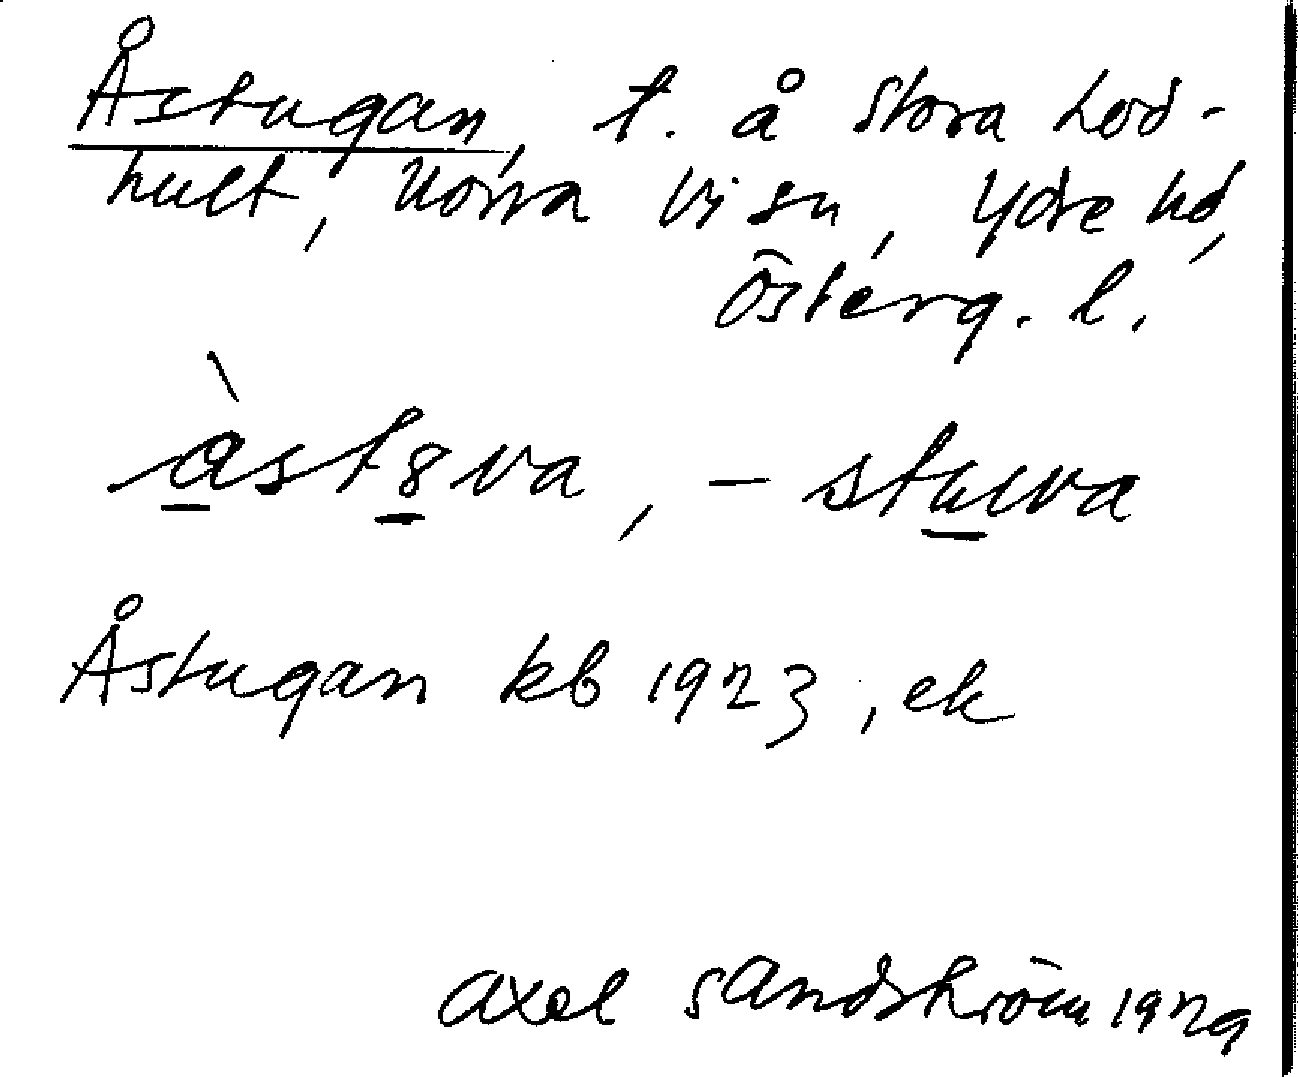 Åstugan, t. å Stora Lod-
hult, Norra Vi sn, Ydre hd,
Österg. l.
àst8va, - stuva
Åstugan kb 1923, ek
Axel Sandström 1929